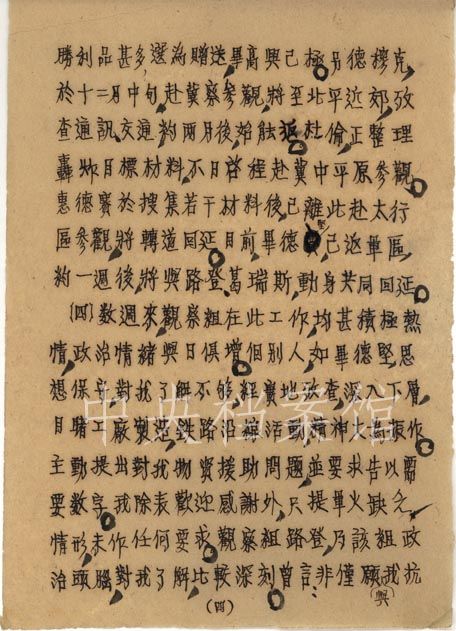 勝利品甚多選為贈送畢高興己極另德穆克
於十二月中旬赴冀察參觀將至北平近郊攷
查通訊交通約兩月後始能返杜倫正整理
轟炸目標材料不日啓程赴冀中平原參觀
惠德賽於搜集若干材料後已離此赴太行
區參觀將轉道回延目前畢德已返軍區
約一週後將與路登葛瑞斯動身共同回延
〔四〕数週來觀察組在此工作均甚積極熱
情政治情緒與日俱增個别人如畢德堅思
想保守對我了解不够經實地攷查深入下層
目睹工廠製造鉄路沿線活動精神大為振作
主動提出對我物資援助問題並要求告以需
要数字我除表歡迎感謝外只提軍火缺乏
情形未作任何要求觀察組路登乃該組政
治頭腦對我了解比較深刻曾言非僅願我抗
與
(四)
中央档案馆